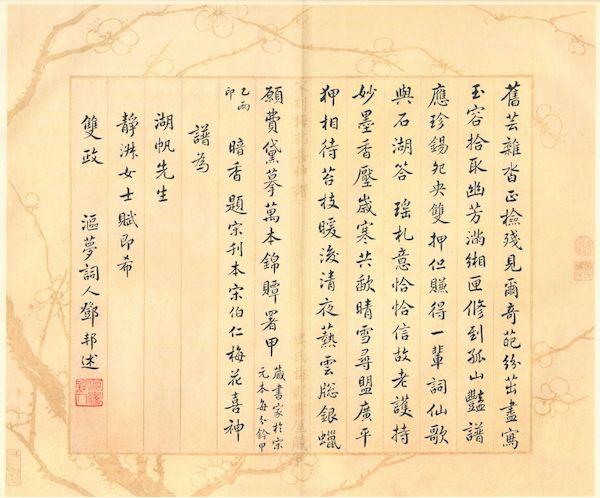 舊芸雜沓正檢殘見爾奇葩紛茁盡寫
玉容拾取幽芳滿緗匣修到孤山豔譜
應珍錫夗央雙押但賺得一輩詞仙歌
與石湖答 瑤札意恰恰信故老護持
妙墨香壓歲寒共歃晴雪尋盟廣平
狎相待苔枝暖後清夜爇雲牕銀蠟
願費黛摹萬本錦贉署甲
藏書家於宋
元本每分鈐甲
乙兩
印
暗香 題宋刊本宋伯仁梅花喜神
譜為
湖帆先生
靜淑女士賦即希
雙政 漚夢詞人鄧邦述